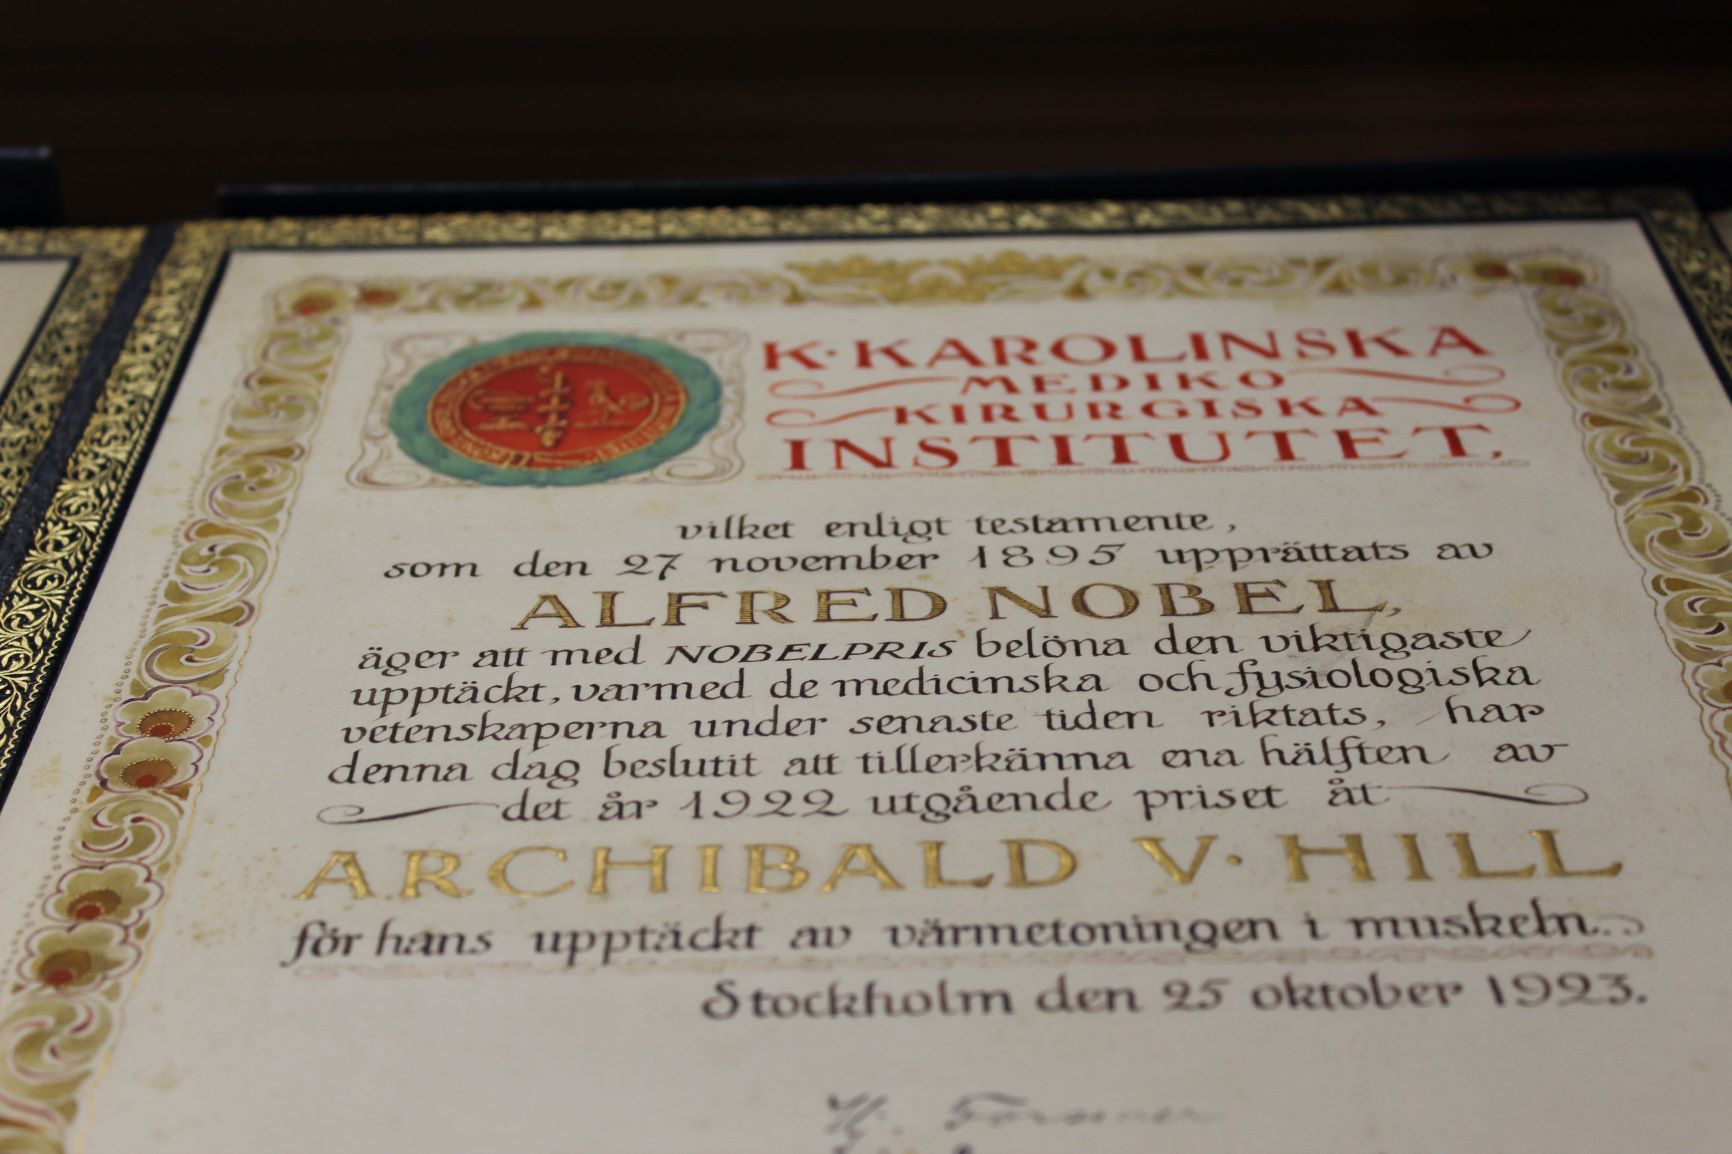 K. KAROLINSKA
MEDIKO
KIRURGISKA
INSTITUTET.
vilket enligt testamente,
som den 27 november 1895 upprättats av
ALFRED NOBEL,
äger att med NOBELPRIS belöna den viktigaste
upptäckt, varmed de medicinska och fysiologiska
vetenskaperna under senaste tiden riktats, har
denna dag beslutit att tillerkänna ena hälften av
det år 1922 utgående priset åt
ARCHIBALD V. HILL
för hans upptäckt av värmetoningen i muskeln.
Stockholm den 25 oktober 1923.